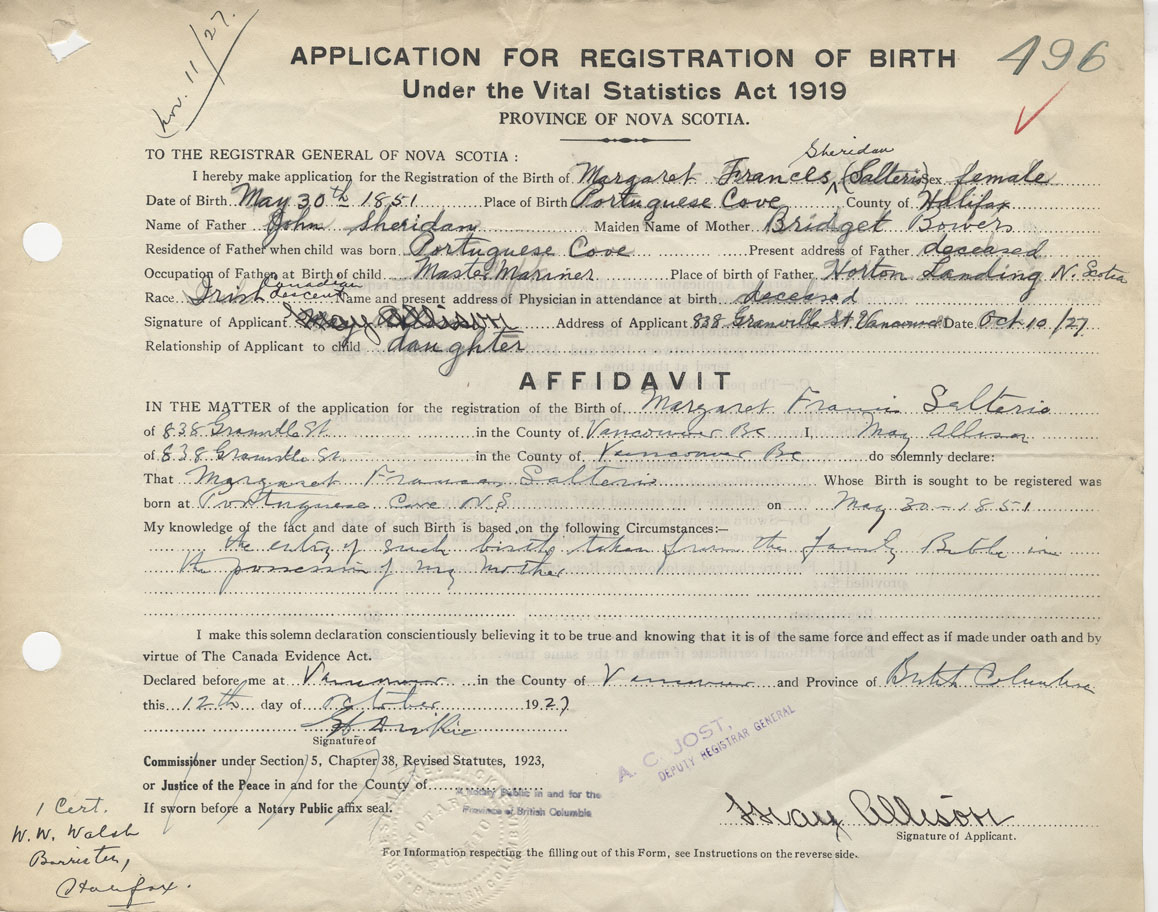 Nov. 11/27.
496
APPLICATION FOR REGISTRATION OF BIRTH
Under the Vital Statistics Act 1919
PROVINCE OF NOVA SCOTIA.
TO THE REGISTRAR GENERAL OF NOVA SCOTIA :
Sheridan
I hereby make application for the Registration of the Birth of Margaret Frances (Salterio) Sex female
Date of Birth May 30th 1851 Place of Birth Portuguese Cove County of Halifax
Name of Father John Sheridan Maiden Name of Mother Bridget Bowers
Residence of Father when child was born Portuguese Cove Present address of Father deceased
Occupation of Father at Birth of child Master Mariner Place of birth of Father Horton Landing N. Scotia
Canadian
Race Irish descent Name and present address of Physician in attendance at birth deceased
Signature of Applicant May Allison Address of Applicant 838 Granville St. Vancouver Date Oct 10/27
Relationship of Applicant to child daughter
AFFIDAVIT
IN THE MATTER of the application for the registration of the Birth of Margaret Francis Salterio
of 838 Granville St. in the County of Vancouver BC I, May Allison
of 838 Granville St. in the County of Vancouver BC do solemnly declare:
That Margaret Frances Salterio Whose Birth is sought to be registered was
born at Portuguese Cove N.S on May 30 - 1851
My knowledge of the fact and date of such Birth is based on the following Circumstances:—
the entry of such birth taken from the family Bible in
the possession of my mother
I make this solemn declaration conscientiously believing it to be true and knowing that it is of the same force and effect as if made under oath and by
virtue of The Canada Evidence Act.
Declared before me at Vancouver in the County of Vancouver and Province of British Columbia
this 12th day of October 1927
Signature of
A. C. JOST,
DEPUTY REGISTRAR GENERAL
Commissioner under Section 5, Chapter 38, Revised Statutes, 1923,
or Justice of the Peace in and for the County of
A Notary Public in and for the
Province of British Columbia
If sworn before a Notary Public affix seal.
May Allison
Signature of Applicant.
For Information respecting the filling out of this Form, see Instructions on the reverse side.
1 Cert.
W. W. Walsh
Barrister,
Halifax.